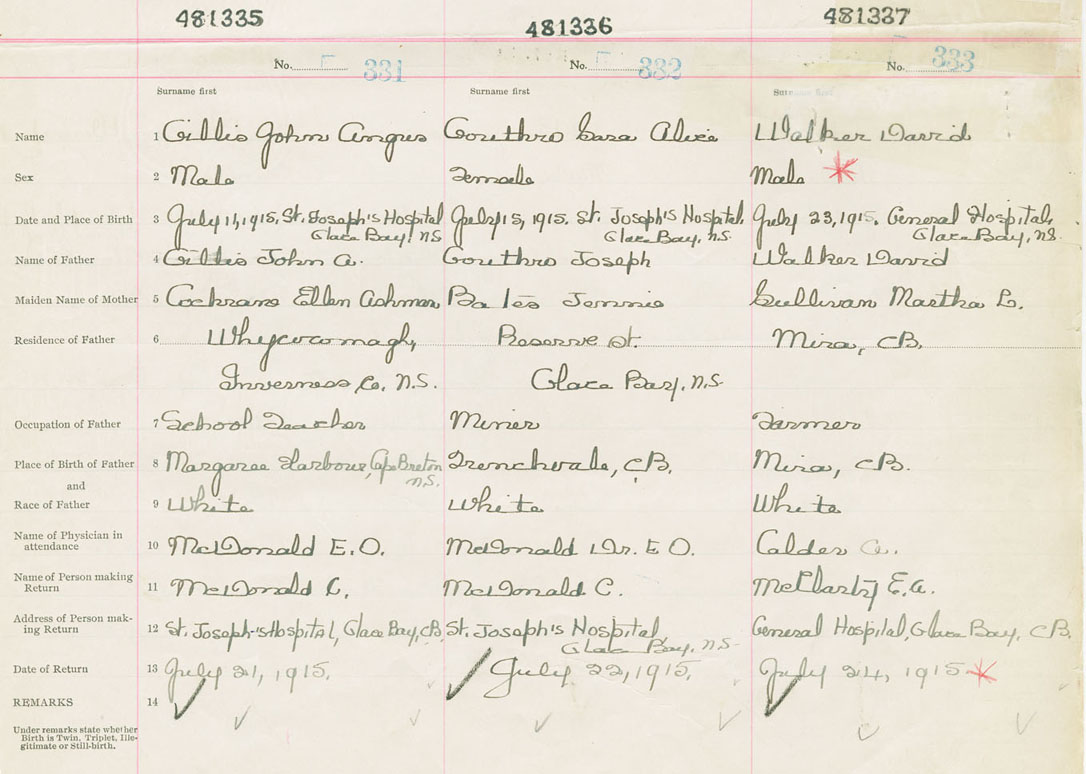 481335 481336 481337
No. F 331 No. F 332 No. F 333
Surname first Surname first Surname first
Name 1 Gillis John Angus Gouthro Sara Alice Walker David
Sex 2 Male Female Male
Date and Place of Birth 3 July 11, 1915, St. Joseph's Hospital July 15, 1915. St. Joseph's Hospital, July 23, 1915. General Hospital,
Glace Bay, N.S Glace Bay, N.S. Glace Bay, N.S.
Name of Father 4 Gillis John A. Gouthro Joseph Walker David
Maiden Name of Mother 5 Cochrane Ellen Bates Jennie Sullivan Martha L.
Residence of Father 6 Whycocomagh, Reserve St. Mira, CB,
Inverness Co, N.S. Glace Bay, N.S
Occupation of Father 7 School Teacher Miner Farmer
Place of Birth of Father 8 Margaree Harbour, Cape Breton Frenchvale, CB, Mira, CB.
N.S.
and
Race of Father 9 White White White
Name of Physician in
attendance 10 McDonald E.O. McDonald Dr. E O. Calder A.
Name of Person making
Return 11 McDonald C. McDonald C. E.A.
Address of Person mak-
ing Return 12 St. Joseph's Hospital, Glace Bay, CB, St. Joseph's Hospital, General Hospital, Glace Bay, CB.
Glace Bay, N.S.
Date of Return 13 July 21, 1915. July 22, 1915. July 24, 1915
REMARKS 14
Under remarks state whether
Birth is Twin, Triplet, Ille-
gitimate or Still-birth.